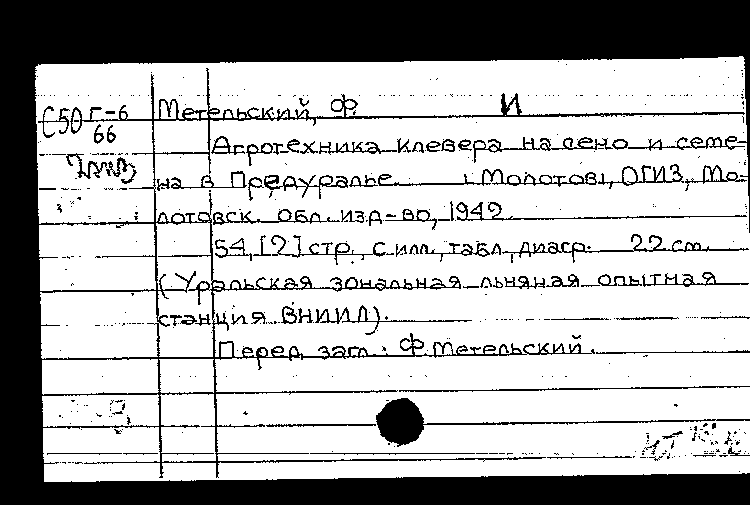 С50 Г-6
66
Метельский, Ф. И
Агротехника клевера на сено и семе-
на в Предуралье. [Молотов], ОГИЗ, Мо-
лотовск. обл. изд-во, 1949.
54, [2] стр., с илл., табл., диагр. 22 см.
(Уральская зональная льняная опытная
станция ВНИИЛ).
Перед загл.: Ф. Метельский.